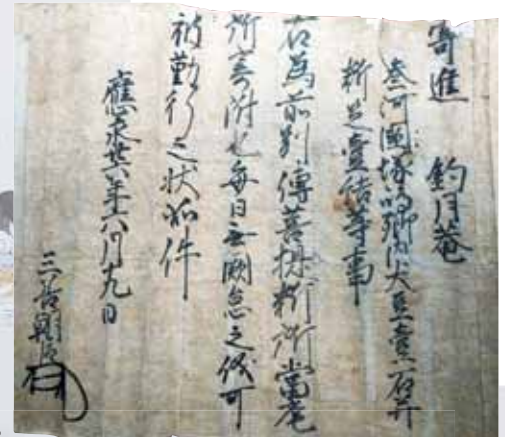 寄進 釣月菴
叅河國塚郷内大豆壹石并
料足壹結等事
右爲前別傳菩提料所當菴
所寄附也毎日無闕怠之儀可
被勤行之状如件
應永廿六年六月九日
三善朝臣